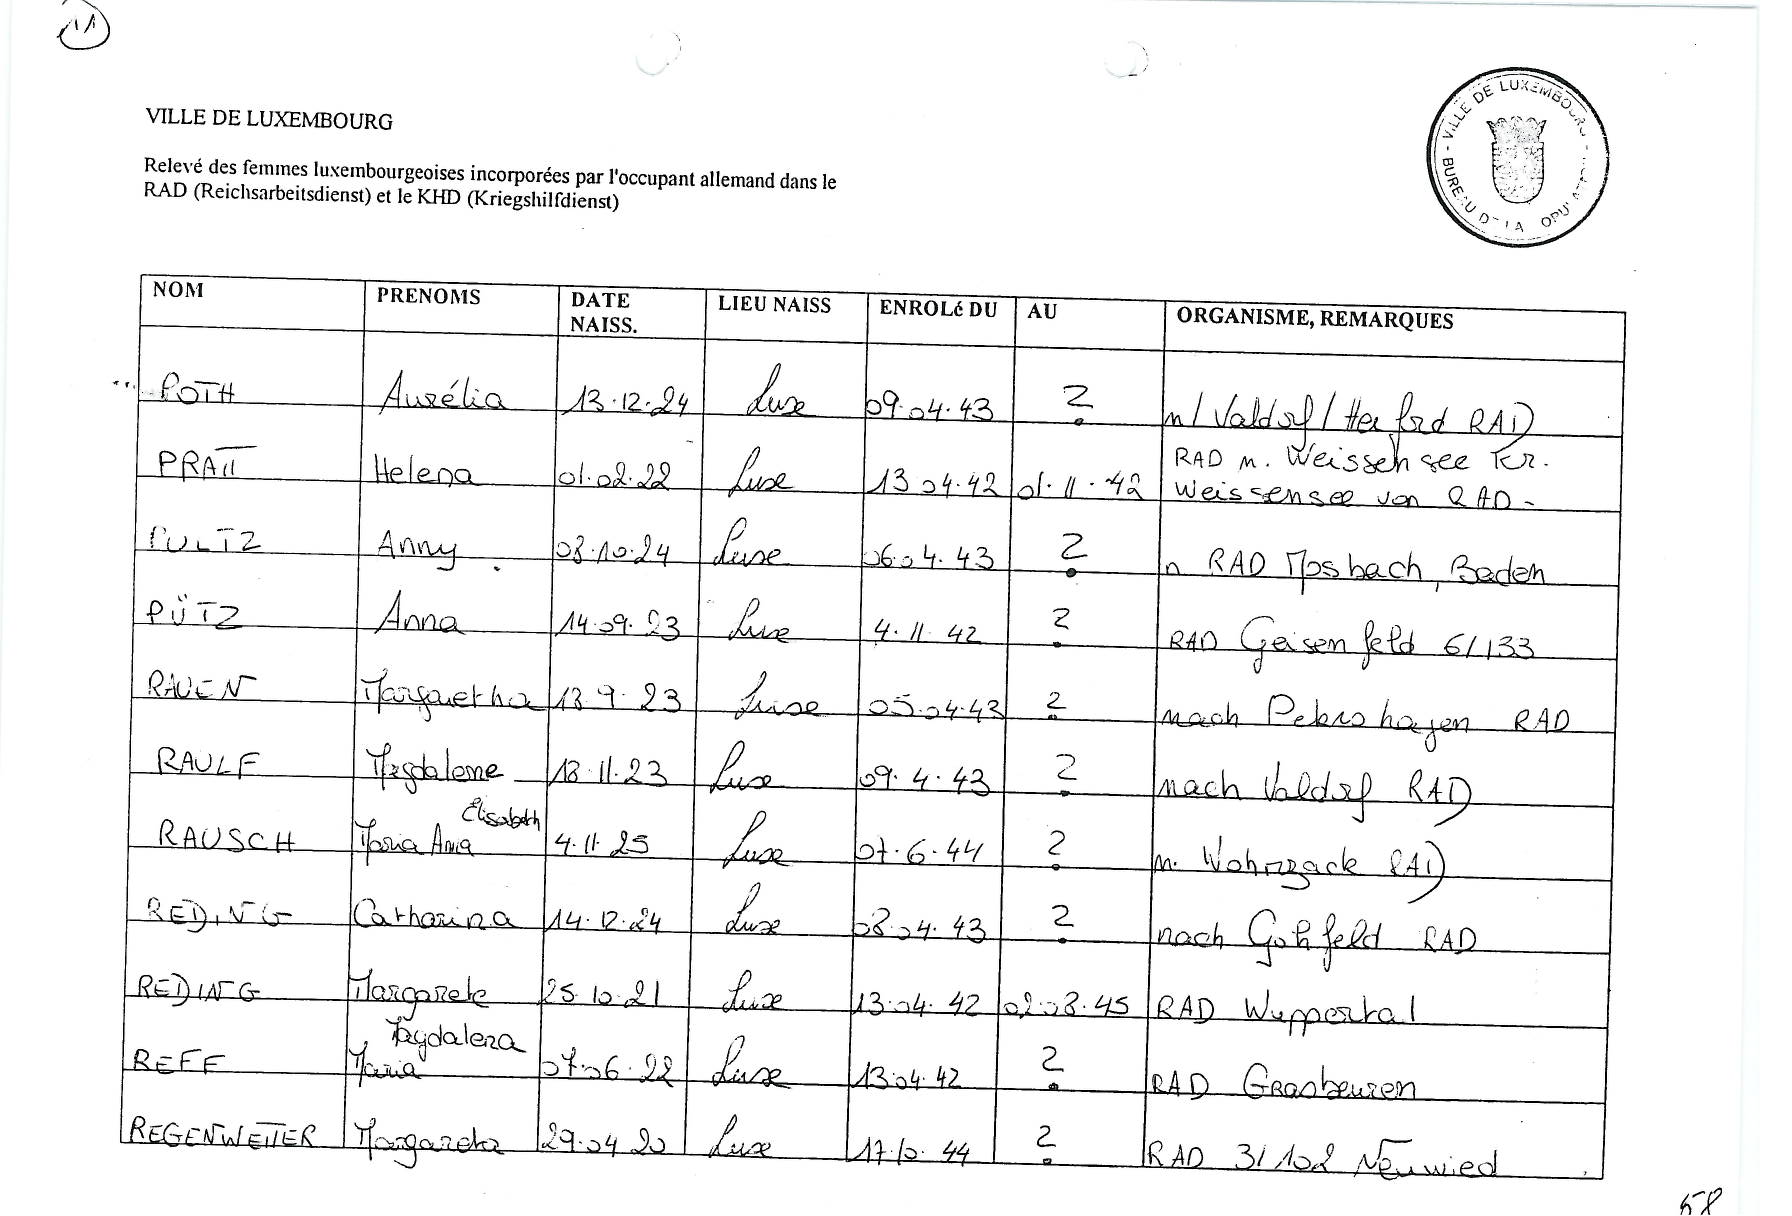 11
VILLE DE LUXEMBOURG
Relevé des femmes luxembourgeoises incorporées par l'occupant allemand dans le
RAD (Reichsarbeitsdienst) et le KHD (Kriegshilfdienst)
- VILLE DE LUXEMBOURG - BUREAU DE LA
NOM PRENOMS DATE NAISS. LIEU NAISS ENROLé DU AU ORGANISME, REMARQUES
POTH Aurélia 13.12.24 Luxe 09.04.43 ? n/ Valdorf / Herford RAD
PRATT Helena 01.02.22 Luxe 13.04.42 01.11.42 RAD n. Weissensee Kr.
Weissensee von RAD-
PULTZ Anny 08.10.24 Luxe 06.04.43 ? n RAD Mosbach, Baden
PÜTZ Anna 14.09.23 Luxe 4.11.42 ? RAD Geisenfeld 6/133
RAUEN Margaretha 18.9.23 Luxe 05.04.43 ? nach Petershagen RAD
RAULF Magdalene 18.11.23 Luxe 09.4.43 ? nach Valdorf RAD
Elisabeth
RAUSCH Maria Anna 4.11.25 Luxe 07.6.44 ? n. RAD
REDING Catharina 14.12.24 Luxe 08.04.43 ? nach Gohfeld RAD
REDING Margarete 25.10.21 Luxe 13.04.42 02.08.45 RAD Wuppertal
Magdalena
REFF Maria 07.06.22 Luxe 13.04.42 ? RAD Grasbeuren
REGENWETTER Margareta 29.04.20 Luxe 17.10.44 ? RAD 3/102 Neuwied
58